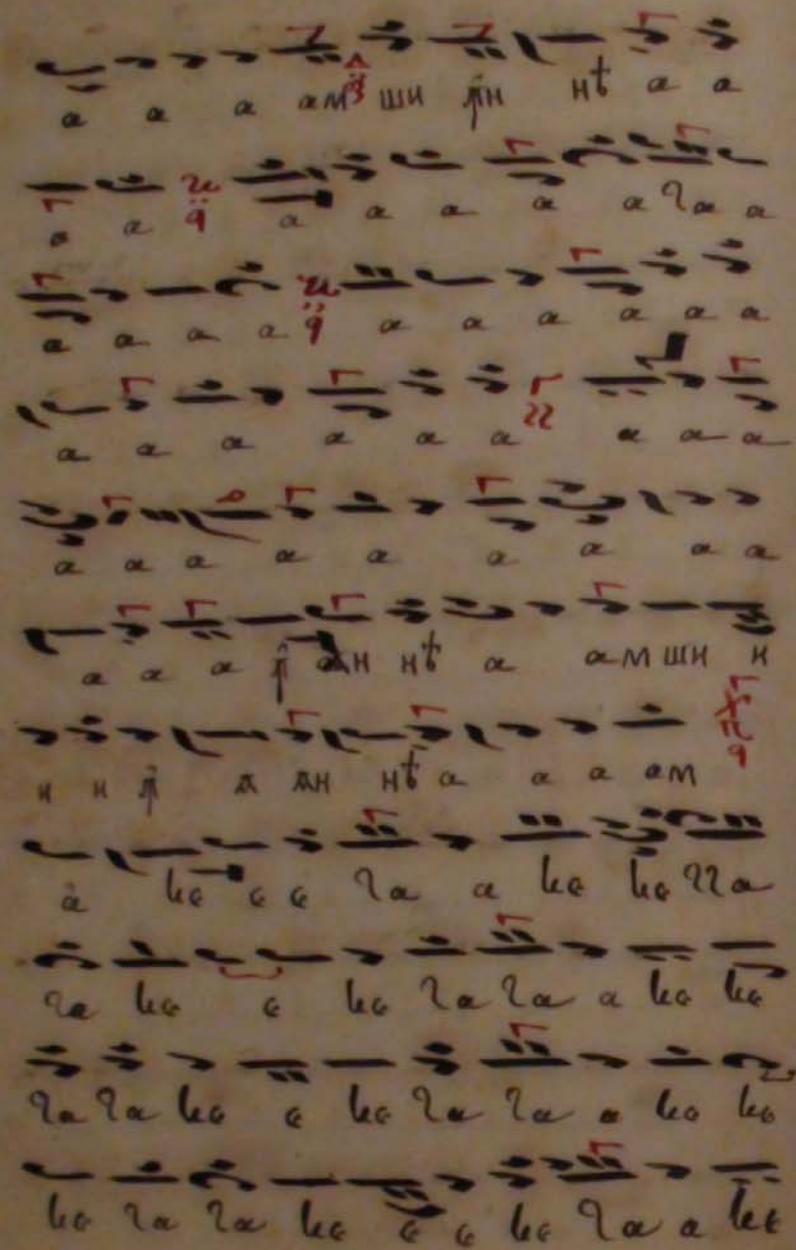 а а а ам ши ꙟн нѣ а а
а а а а а а а га а
а а а а а а а а а а
а а а а а а а а а
а а а а а а а а а
а а а ꙟ ѫн нѣ а ам ши и
и и ꙟ ѫ ѫн нѣ а а а ам
а ке е е га а ке ке гга
га ке е ке га га а ке ке
га га ке е ке га га а ке ке
ке га га ке е е ке га а ке